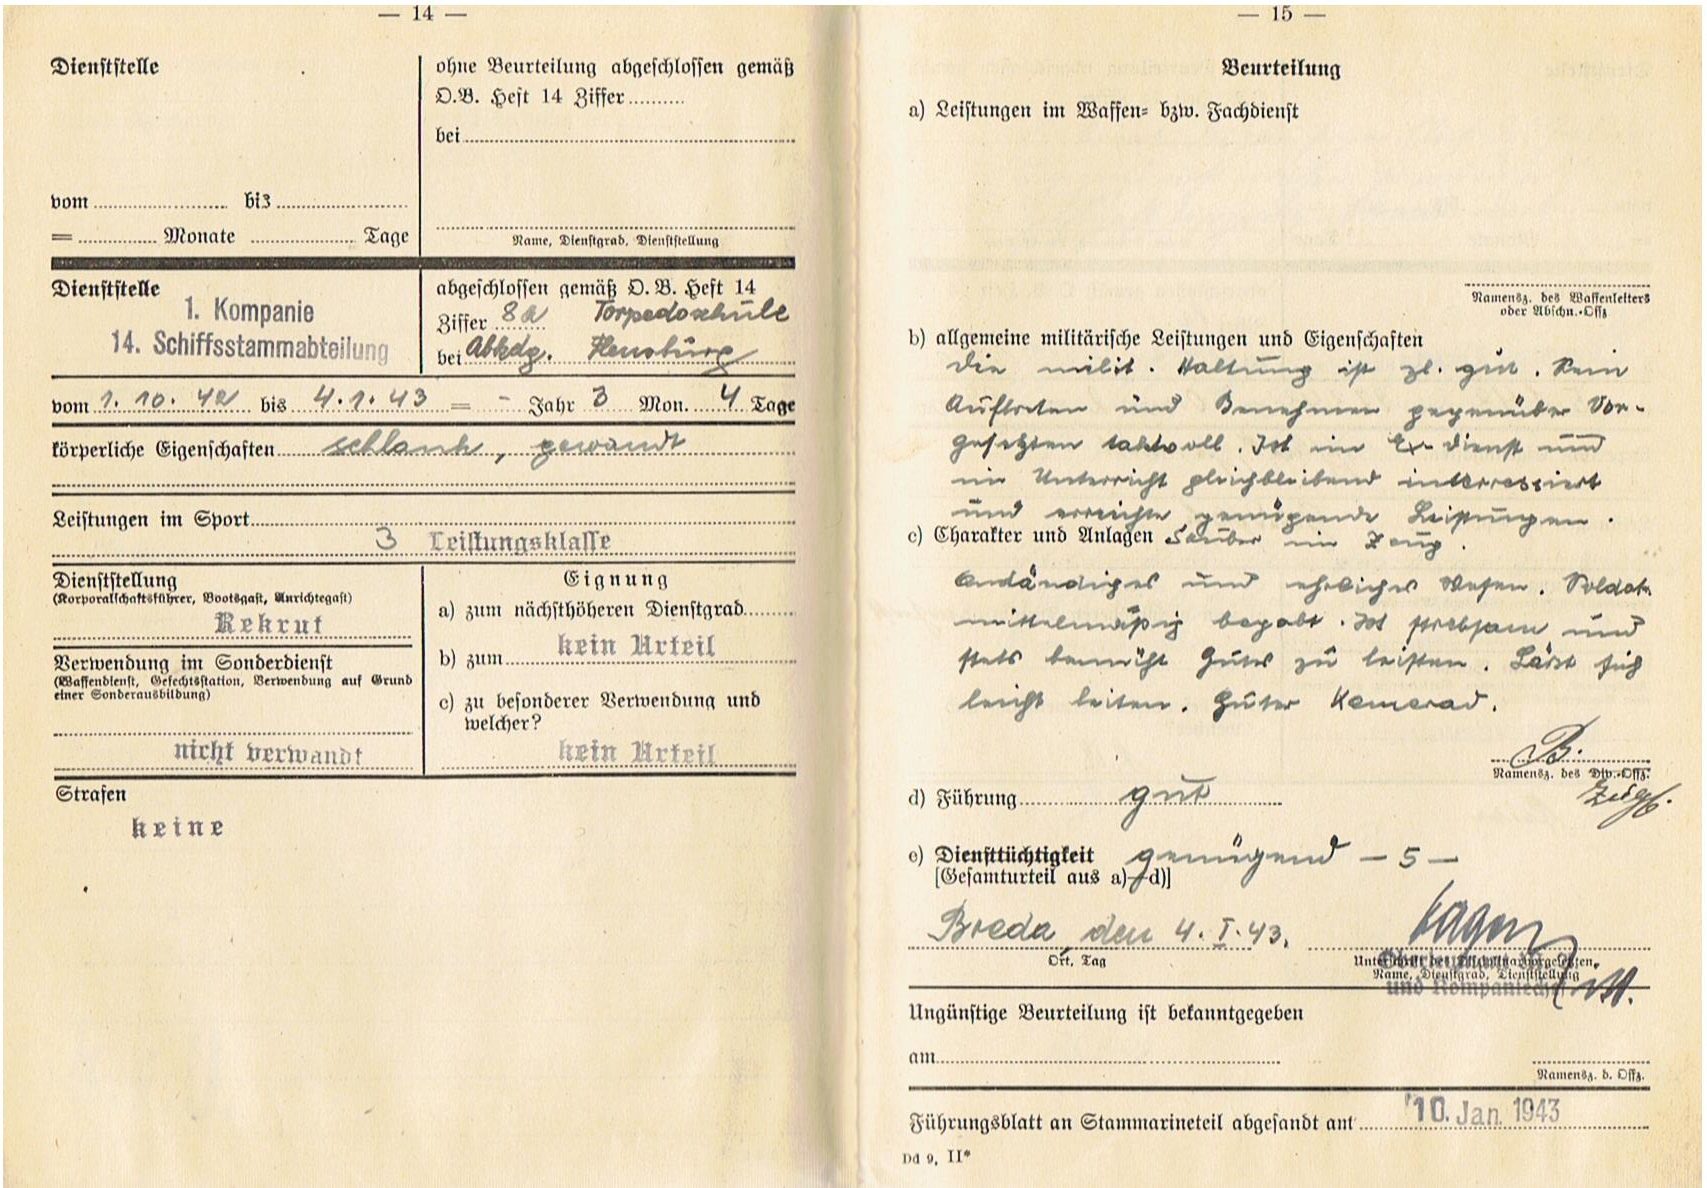 — 14 —
Dienststelle
vom bis
= Monate Tage
ohne Beurteilung abgeschlossen gemäß
O.B. Heft 14 Ziffer
bei
Name, Dienstgrad, Dienststellung
Dienststelle
1. Kompanie
14. Schiffsstammabteilung
abgeschlossen gemäß O.B. Heft 14
Ziffer 8a Torpedoschule
bei Abkdg. Flensburg
vom 1. 10. 42 bis 4. 1. 43 = - Jahr 3 Mon. 4 Tage
körperliche Eigenschaften schlank, gewandt
Leistungen im Sport
3 Leistungsklasse
Dienststellung
(Korporalschaftsführer, Bootsgast, Anrichtegast)
Rekrut
Verwendung im Sonderdienst
(Waffendienst, Gefechtsstation, Verwendung auf Grund
einer Sonderausbildung)
nicht verwandt
Eignung
a) zum nächsthöheren Dienstgrad
kein Urteil
b) zum
c) zu besonderer Verwendung und
welcher?
kein Urteil
Strafen
keine
— 15 —
Beurteilung
a) Leistungen im Waffen- bzw. Fachdienst
Namensz. des Waffenleiters
oder Abschn.-Offz
b) allgemeine militärische Leistungen und Eigenschaften
Die milit. Haltung ist zl. gut. Sein
Auftreten und Benehmen gegenüber Vor-
gesetzten taktvoll. Ist im Ex. dienst und
im Unterricht gleichbleibend interressiert
und erreichte genügende Leistungen.
c) Charakter und Anlagen Sauber im Zeug.
Anständiges und ehrliches Wesen. Soldat.
mittelmäßig begabt. Ist strebsam und
stets bemüht Gutes zu leisten. Lässt sich
leicht leiten. Guter Kamerad.
B.
Namensz. des Div.-Offz.
Zugf.
d) Führung gut
e) Diensttüchtigkeit genügend — 5 —
[Gesamturteil aus a)—d)]
Breda, den 4. I. 43.
Ort, Tag
Unterschrift des Disziplinarvorgesetzten,
Name, Dienstgrad, Dienststellung
und Kompaniechef
Ungünstige Beurteilung ist bekanntgegeben
am
Namensz. d. Offz.
Führungsblatt an Stammarineteil abgesandt am 10. Jan. 1943
Dd 9, II*